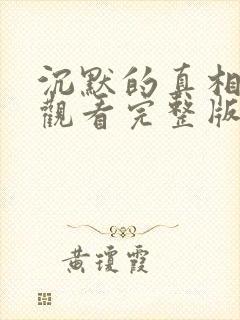 沉默的真相
觀看完整版
黃瓊霞